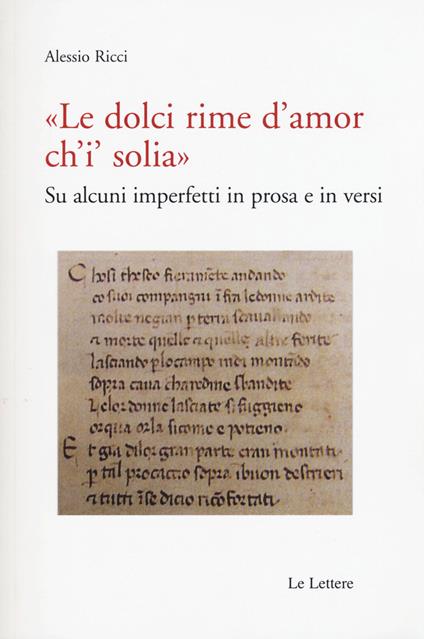 Alessio Ricci
«Le dolci rime d'amor
ch'i' solia»
Su alcuni imperfetti in prosa e in versi
Chosi theseo fieramēte andando
co suoi compangni īfra ledonne ardite
molte negian p terra scauallando
a morte quelle a quelle altre ferite
lasciando plo campo indi montādo
sopra caua sbandite
Lelor donne lasciate si fuggieno
or qua or la sicome e poteno
Et gia dilor gran parte eran montati
p tal procaccio sopra ibuon destrieri
a tutti īse dicio ricōfortati
Le Lettere